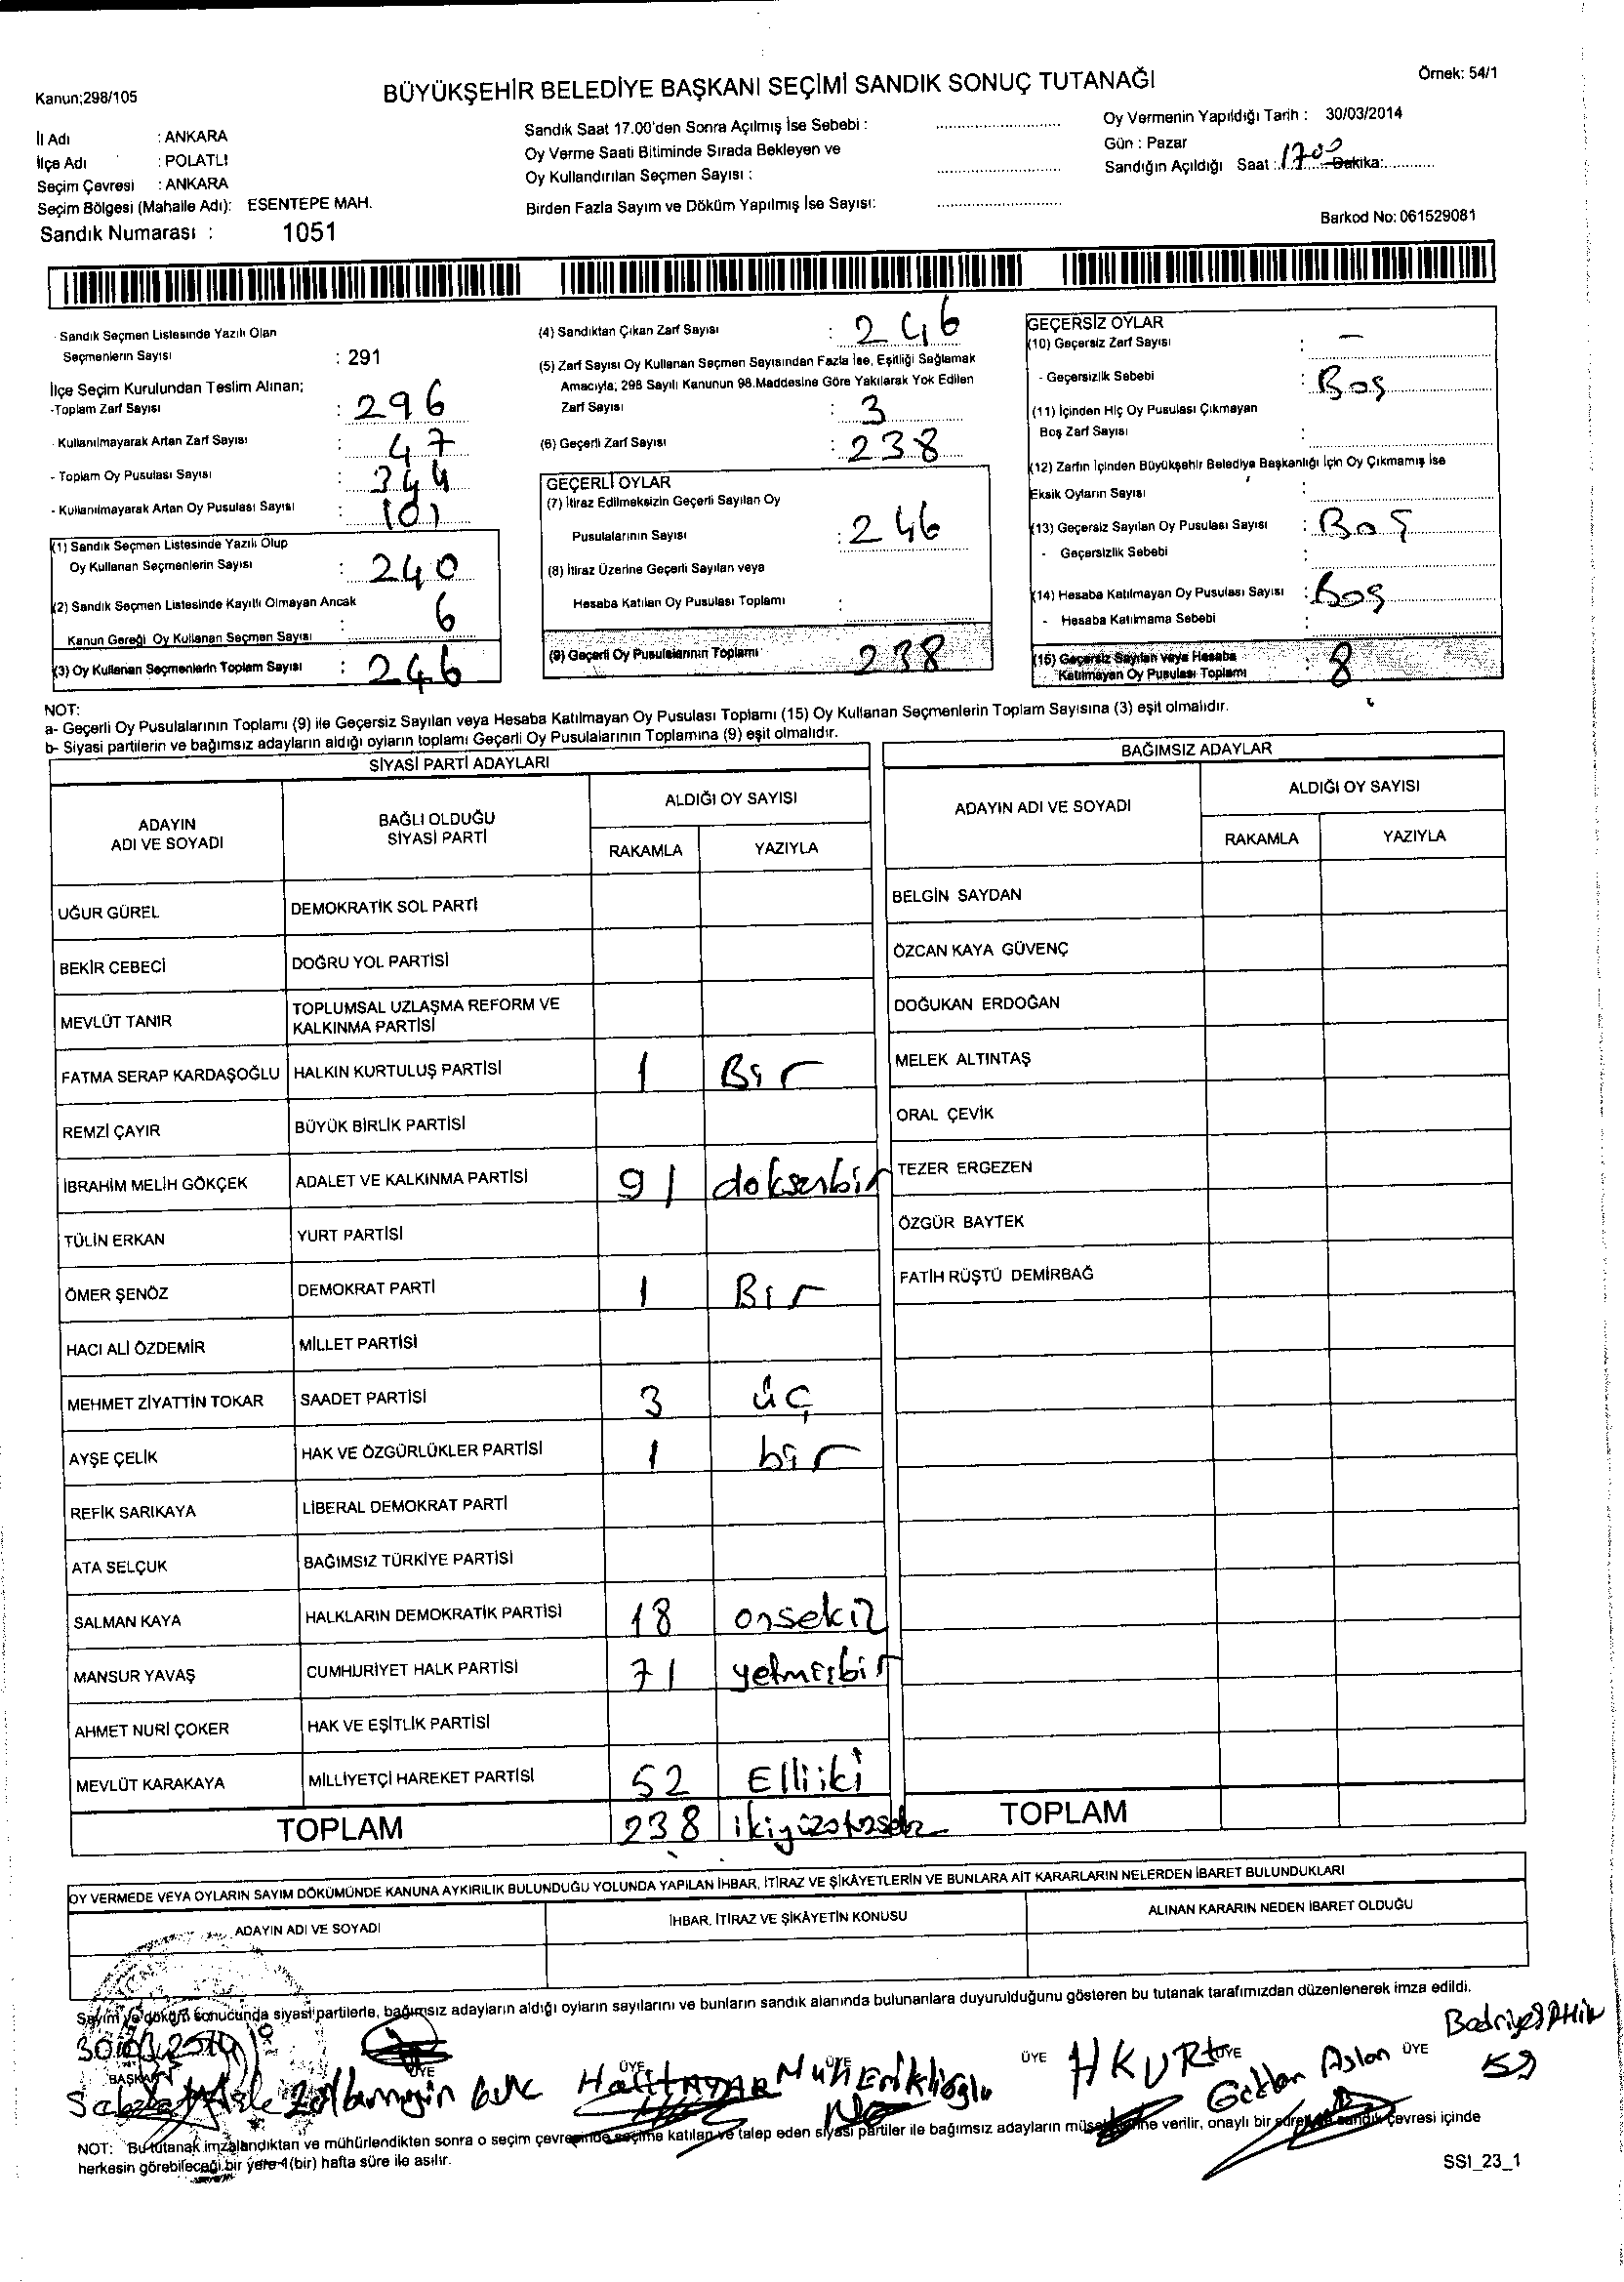 Kanun;298/105
BÜYÜKŞEHİR BELEDİYE BAŞKANI SEÇİMİ SANDIK SONUÇ TUTANAĞI
Örnek: 54/1
İl Adı : ANKARA
İlçe Adı : POLATLI
Seçim Çevresi : ANKARA
Seçim Bölgesi (Mahalle Adı): ESENTEPE MAH.
Sandık Numarası : 1051
Sandık Saat 17.00'den Sonra Açılmış İse Sebebi : ..............................
Oy Verme Saati Bitiminde Sırada Bekleyen ve
Oy Kullandırılan Seçmen Sayısı : ..............................
Birden Fazla Sayım ve Döküm Yapılmış İse Sayısı: ..............................
Oy Vermenin Yapıldığı Tarih : 30/03/2014
Gün : Pazar
Sandığın Açıldığı Saat : 1700 Dakika:............
Barkod No: 061529081
- Sandık Seçmen Listesinde Yazılı Olan
Seçmenlerin Sayısı : 291
İlçe Seçim Kurulundan Teslim Alınan;
-Toplam Zarf Sayısı : 296
- Kullanılmayarak Artan Zarf Sayısı : 47
- Toplam Oy Pusulası Sayısı : 344
- Kullanılmayarak Artan Oy Pusulası Sayısı : 101
(1) Sandık Seçmen Listesinde Yazılı Olup
Oy Kullanan Seçmenlerin Sayısı : 240
(2) Sandık Seçmen Listesinde Kayıtlı Olmayan Ancak
Kanun Gereği Oy Kullanan Seçmen Sayısı : 6
(3) Oy Kullanan Seçmenlerin Toplam Sayısı : 246
(4) Sandıktan Çıkan Zarf Sayısı : 246
(5) Zarf Sayısı Oy Kullanan Seçmen Sayısından Fazla İse, Eşitliği Sağlamak
Amacıyla; 298 Sayılı Kanunun 98.Maddesine Göre Yakılarak Yok Edilen
Zarf Sayısı : 3
(6) Geçerli Zarf Sayısı : 238
GEÇERLİ OYLAR
(7) İtiraz Edilmeksizin Geçerli Sayılan Oy
Pusulalarının Sayısı : 246
(8) İtiraz Üzerine Geçerli Sayılan veya
Hesaba Katılan Oy Pusulası Toplamı :
(9) Geçerli Oy Pusulalarının Toplamı 238
GEÇERSİZ OYLAR
(10) Geçersiz Zarf Sayısı : —
- Geçersizlik Sebebi : Boş
(11) İçinden Hiç Oy Pusulası Çıkmayan
Boş Zarf Sayısı :
(12) Zarfın İçinden Büyükşehir Belediye Başkanlığı İçin Oy Çıkmamış İse
Eksik Oyların Sayısı :
(13) Geçersiz Sayılan Oy Pusulası Sayısı : Boş
- Geçersizlik Sebebi :
(14) Hesaba Katılmayan Oy Pusulası Sayısı : Boş
- Hesaba Katılmama Sebebi :
(15) Geçersiz Sayılan veya Hesaba
Katılmayan Oy Pusulası Toplamı : 8
NOT:
a- Geçerli Oy Pusulalarının Toplamı (9) ile Geçersiz Sayılan veya Hesaba Katılmayan Oy Pusulası Toplamı (15) Oy Kullanan Seçmenlerin Toplam Sayısına (3) eşit olmalıdır.
b- Siyasi partilerin ve bağımsız adayların aldığı oyların toplamı Geçerli Oy Pusulalarının Toplamına (9) eşit olmalıdır.
SİYASİ PARTİ ADAYLARI
ADAYIN ADI VE SOYADI
BAĞLI OLDUĞU SİYASİ PARTİ
ALDIĞI OY SAYISI
RAKAMLA YAZIYLA
UĞUR GÜREL DEMOKRATİK SOL PARTİ
BEKİR CEBECİ DOĞRU YOL PARTİSİ
MEVLÜT TANIR TOPLUMSAL UZLAŞMA REFORM VE KALKINMA PARTİSİ
FATMA SERAP KARDAŞOĞLU HALKIN KURTULUŞ PARTİSİ 1 Bir
REMZİ ÇAYIR BÜYÜK BİRLİK PARTİSİ
İBRAHİM MELİH GÖKÇEK ADALET VE KALKINMA PARTİSİ 91 doksanbir
TÜLİN ERKAN YURT PARTİSİ
ÖMER ŞENÖZ DEMOKRAT PARTİ 1 Bir
HACI ALİ ÖZDEMİR MİLLET PARTİSİ
MEHMET ZİYATTİN TOKAR SAADET PARTİSİ 3 üç
AYŞE ÇELİK HAK VE ÖZGÜRLÜKLER PARTİSİ 1 bir
REFİK SARIKAYA LİBERAL DEMOKRAT PARTİ
ATA SELÇUK BAĞIMSIZ TÜRKİYE PARTİSİ
SALMAN KAYA HALKLARIN DEMOKRATİK PARTİSİ 18 onsekiz
MANSUR YAVAŞ CUMHURİYET HALK PARTİSİ 71 yetmişbir
AHMET NURİ ÇOKER HAK VE EŞİTLİK PARTİSİ
MEVLÜT KARAKAYA MİLLİYETÇİ HAREKET PARTİSİ 52 Elliiki
TOPLAM 238
BAĞIMSIZ ADAYLAR
ADAYIN ADI VE SOYADI
ALDIĞI OY SAYISI
RAKAMLA YAZIYLA
BELGİN SAYDAN
ÖZCAN KAYA GÜVENÇ
DOĞUKAN ERDOĞAN
MELEK ALTINTAŞ
ORAL ÇEVİK
TEZER ERGEZEN
ÖZGÜR BAYTEK
FATİH RÜŞTÜ DEMİRBAĞ
TOPLAM
OY VERMEDE VEYA OYLARIN SAYIM DÖKÜMÜNDE KANUNA AYKIRILIK BULUNDUĞU YOLUNDA YAPILAN İHBAR, İTİRAZ VE ŞİKÂYETLERİN VE BUNLARA AİT KARARLARIN NELERDEN İBARET BULUNDUKLARI
ADAYIN ADI VE SOYADI
İHBAR, İTİRAZ VE ŞİKÂYETİN KONUSU
ALINAN KARARIN NEDEN İBARET OLDUĞU
Sayım ve döküm sonucunda siyasi partilerle, bağımsız adayların aldığı oyların sayılarını ve bunların sandık alanında bulunanlara duyurulduğunu gösteren bu tutanak tarafımızdan düzenlenerek imza edildi.
BAŞKAN ÜYE ÜYE ÜYE ÜYE ÜYE ÜYE
H KURT Gökhan Aslan
NOT: Bu tutanak imzalandıktan ve mühürlendikten sonra o seçim çevresinde seçime katılan ve talep eden siyasi partiler ile bağımsız adayların müşahitlerine verilir, onaylı bir sureti de sandık çevresi içinde
herkesin görebileceği bir yere 1 (bir) hafta süre ile asılır.
SSI_23_1